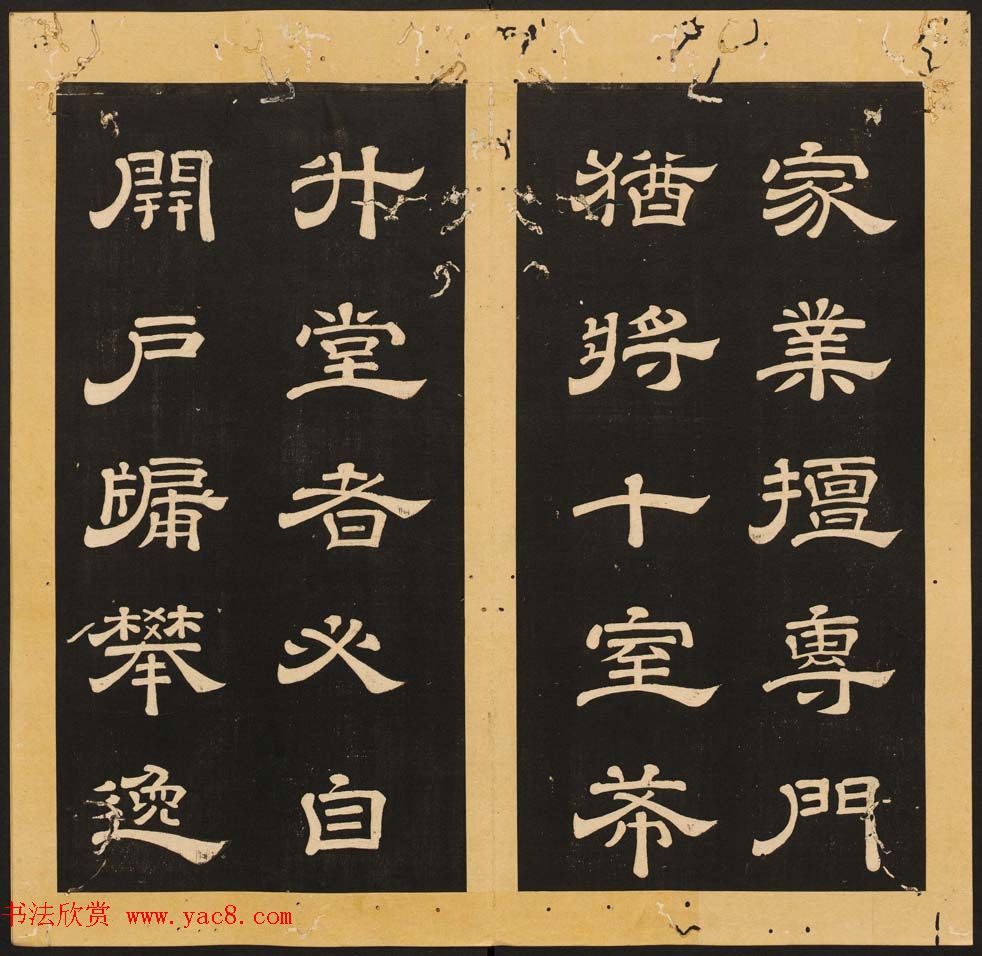 家業擅專門
猶將十室希
升堂者必自
開戶牖攀逸
书法欣赏 www.yac8.com